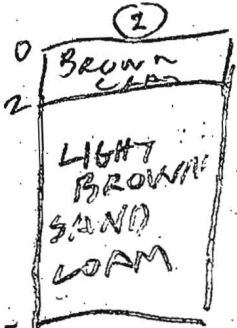 2
0
BROWN
CLAY
2
LIGHT
BROWN
SAND
LOAM